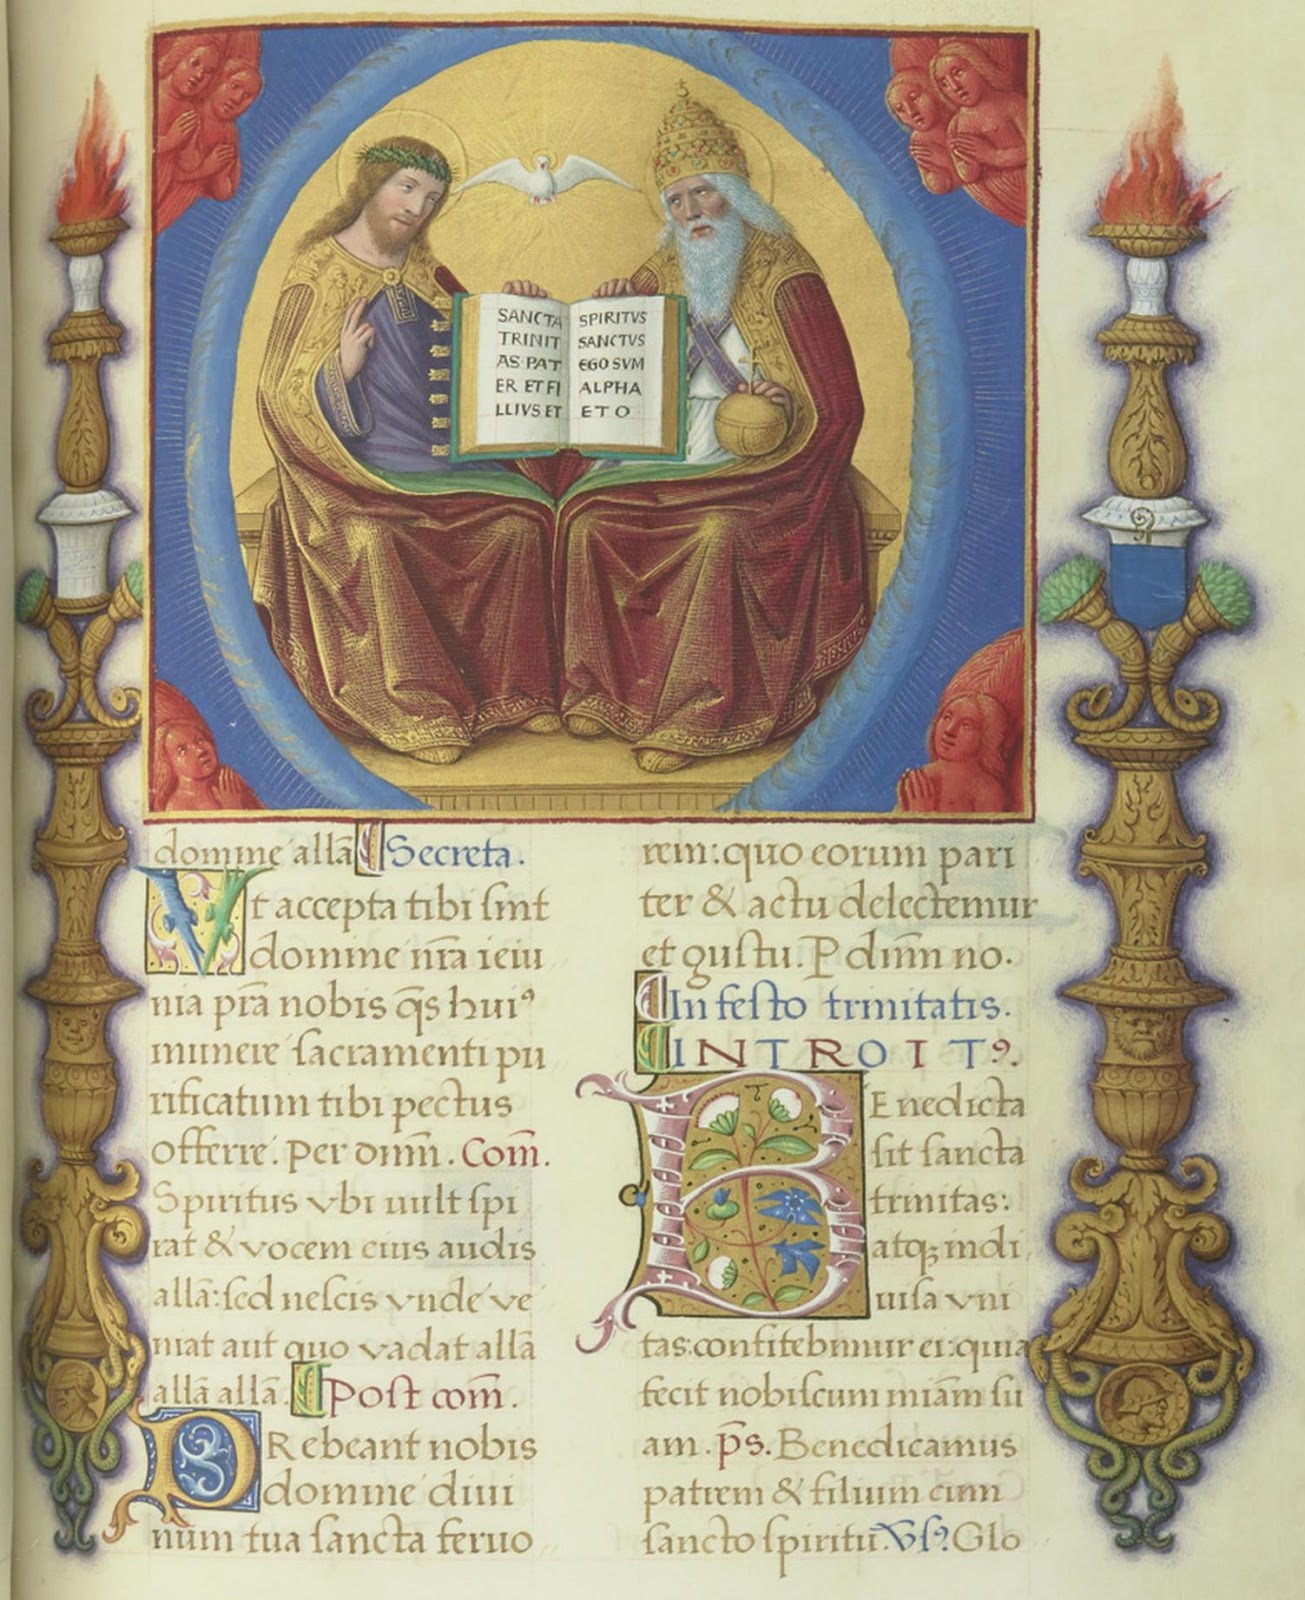 SANCTA
TRINIT
AS·PAT
ER ET FI
LLIVS ET
SPIRITVS
SANCTVS
EGO SVM
ALPHA
ET O
domine allā Secreta.
Vt accepta tibi sint
domine nr̄a ieiu
nia pr̄a nobis q̄s huiꝰ
munere sacramenti pu
rificatum tibi pectus
offerre. Per dnm̄. Com̄.
Spiritus vbi uult spi
rat & vocem eius audis
allā: sed nescis vnde ve
niat aut quo vadat allā
allā allā. Post com̄.
PRebeant nobis
domine diui
num tua sancta feruo
rem: quo eorum pari
ter & actu delectemur
et gustu. P dnm̄ no.
In festo trinitatis.
INTROITꝰ.
BEnedicta
sit sancta
trinitas:
atqꝫ indi
uisa vni
tas: confitebimur ei: quia
fecit nobiscum miam̄ su
am. p̄s. Benedicamus
patrem & filium cum
sancto spiritu. V̄sꝰ. Glo